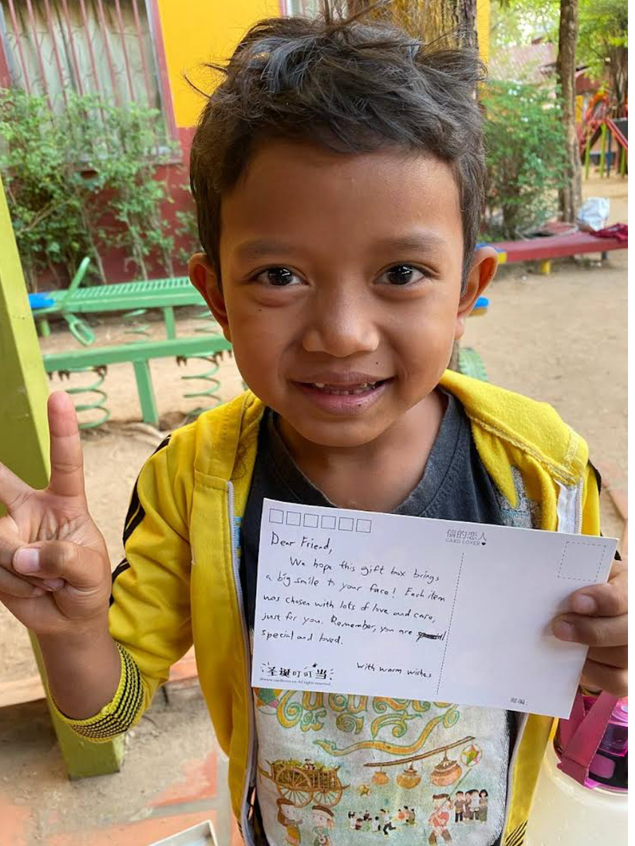 信的恋人
CARD LOVER
Dear Friend,
We hope this gift box brings
a big smile to your face! Each item
was chosen with lots of love and care,
just for you. Remember, you are
special and loved.
With warm wishes,
圣诞叮叮当
邮编